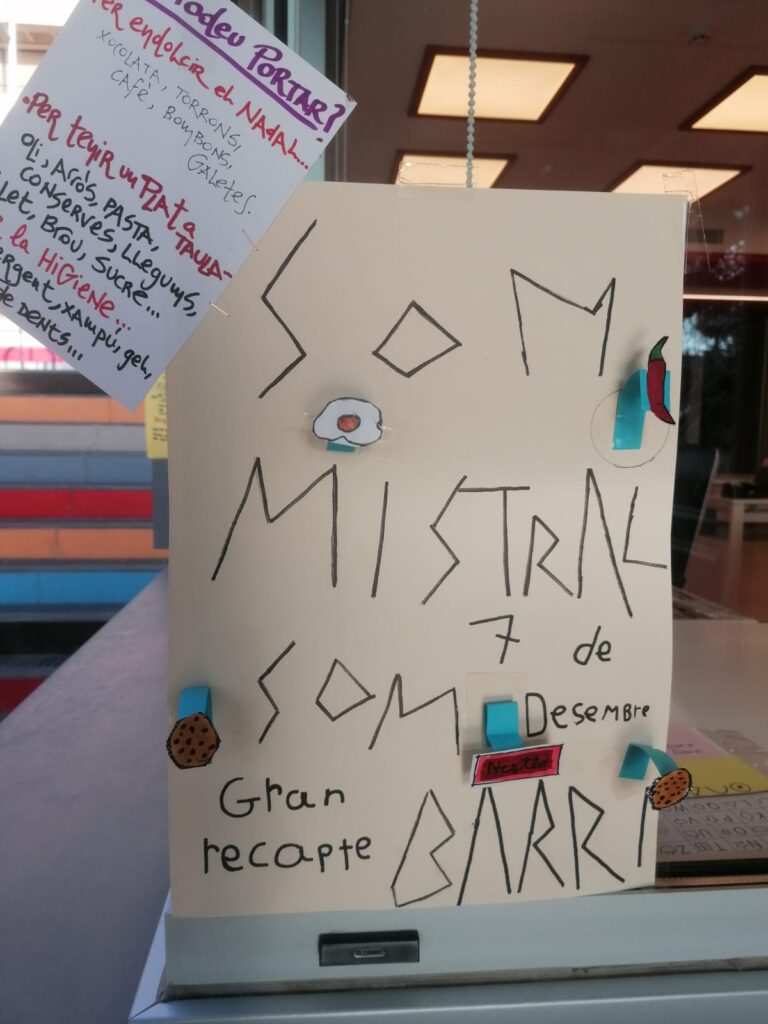 Podeu PORTAR?
PER ENDOLCIR EL NADAL...
XOCOLATA, TORRONS,
CAFÈ, BOMBONS,
GALETES.
·PER TENIR UN PLAT a
TAULA-
Oli, ARRÒS, PASTA,
CONSERVES, LLEGUMS,
LLET, BROU, SUCRE...
la HIGIENE...
XAMPÚ, gel,
DE DENTS...
SOM
MISTRAL
7 de
Desembre
SOM
Nestle
Gran
recapte
BARRI